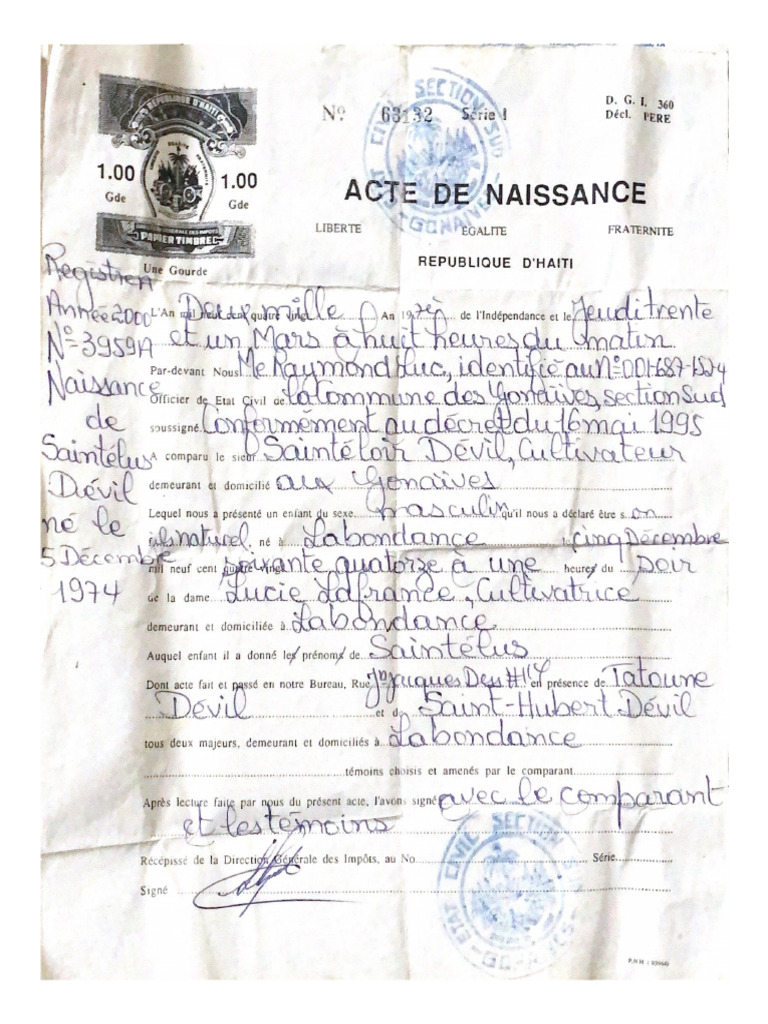 REPUBLIQUE D'HAITI
EGALITE
1.00 Gde
1.00 Gde
PAPIER TIMBRE
Une Gourde
No 63132 Série I
D. G. I. 360
Décl. PERE
ETAT CIVIL SECTION SUD GONAIVES
ACTE DE NAISSANCE
LIBERTE EGALITE FRATERNITE
REPUBLIQUE D'HAITI
Registre
Année 2000
No-3959A
Naissance
de
Saintélus
Dévil
né le
5 Décembre
1974
L'An mil neuf cent quatre vingt Deux mille An 197è de l'Indépendance et le Jeudi trente
et un Mars à huit heures du matin
Par-devant Nous Me Raymond Luc, identifié au No 001-687-1524
Officier de Etat Civil de La Commune des Gonaïves, section Sud
soussigné Conformément au décret du 16 mai 1995
A comparu le sieur Saintéloir Dévil, Cultivateur
demeurant et domicilié aux Gonaïves
Lequel nous a présenté un enfant du sexe masculin qu'il nous a déclaré être son
fils naturel, né à Labondance le cinq Décembre
mil neuf cent quatre vingt soixante quatorze à une heures du soir
de la dame Lucie Lafrance, Cultivatrice
demeurant et domiciliée à Labondance
Auquel enfant il a donné les prénoms de Saintélus
Dont acte fait et passé en notre Bureau, Rue Jn Jacques Dess en présence de Tatoune
Dévil et de Saint-Hubert Dévil
tous deux majeurs, demeurant et domiciliés à Labondance
témoins choisis et amenés par le comparant
Après lecture faite par nous du présent acte, l'avons signé avec le comparant
et les témoins
Récépissé de la Direction Générale des Impôts, au No Série
Signé
ETAT CIVIL SECTION